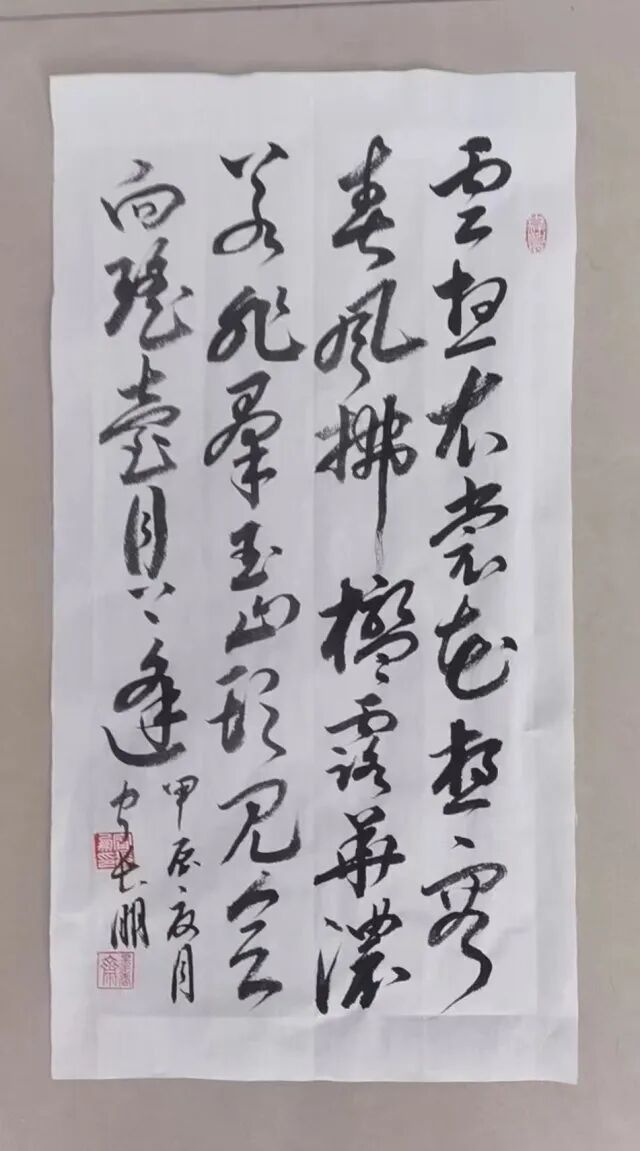 雲想衣裳花想容
春風拂檻露華濃
若非羣玉山頭見会
向瑤臺月下逢
甲辰夏月
长朋